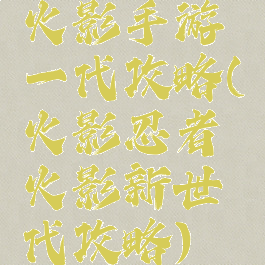 火影手游
一代攻略(
火影忍者
火影新世
代攻略)